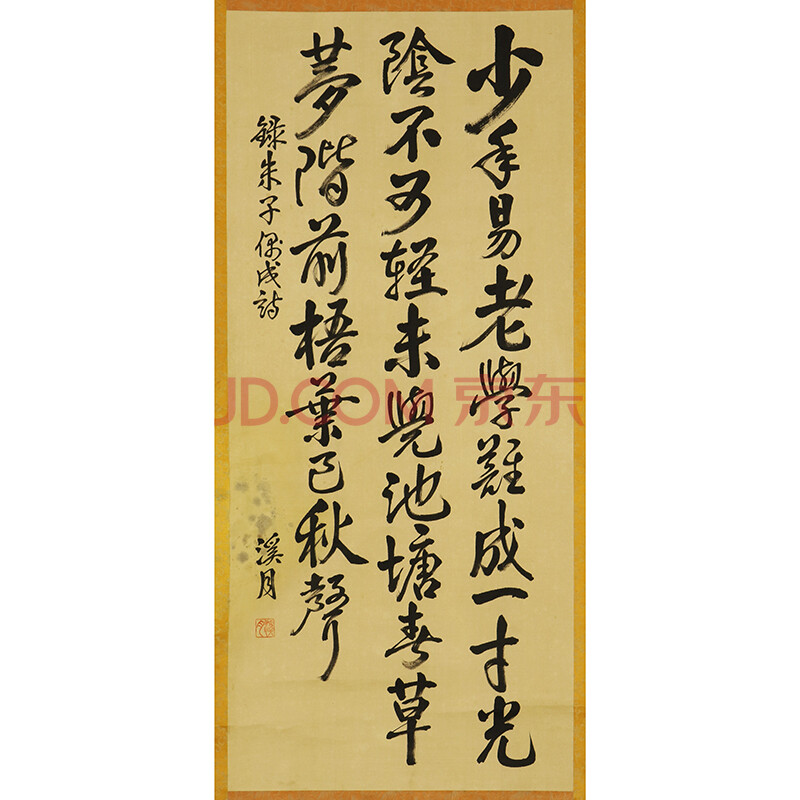 少年易老學難成一寸光
陰不可輕未覺池塘春草
夢階前梧葉已秋聲
録朱子偶成詩
溪月
JD.COM 京东